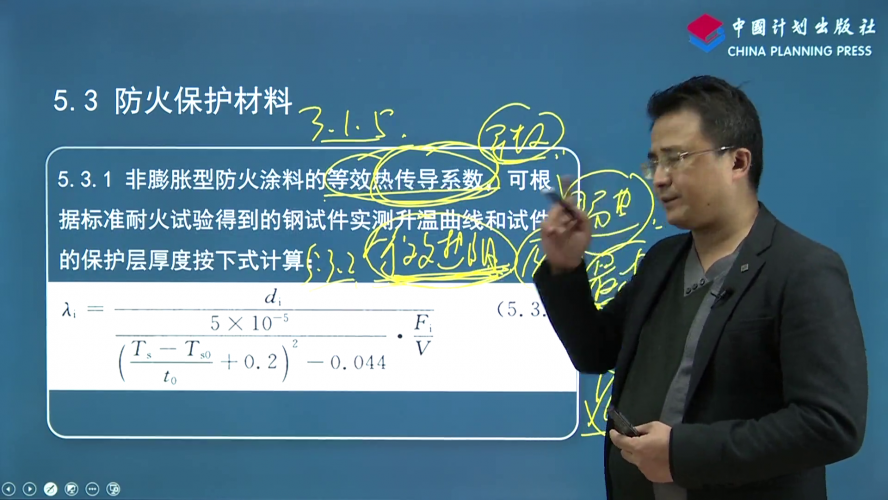 中國计划出版社
CHINA PLANNING PRESS
5.3 防火保护材料
3.1.5.
5.3.1 非膨胀型防火涂料的等效热传导系数，可根
据标准耐火试验得到的钢试件实测升温曲线和试件
的保护层厚度按下式计算
5.3.2 等效热阻
λi = di / ( 5×10⁻⁵ / ( ( (Ts − Ts0) / t0 + 0.2 )² − 0.044 ) · Fi / V ) （5.3.